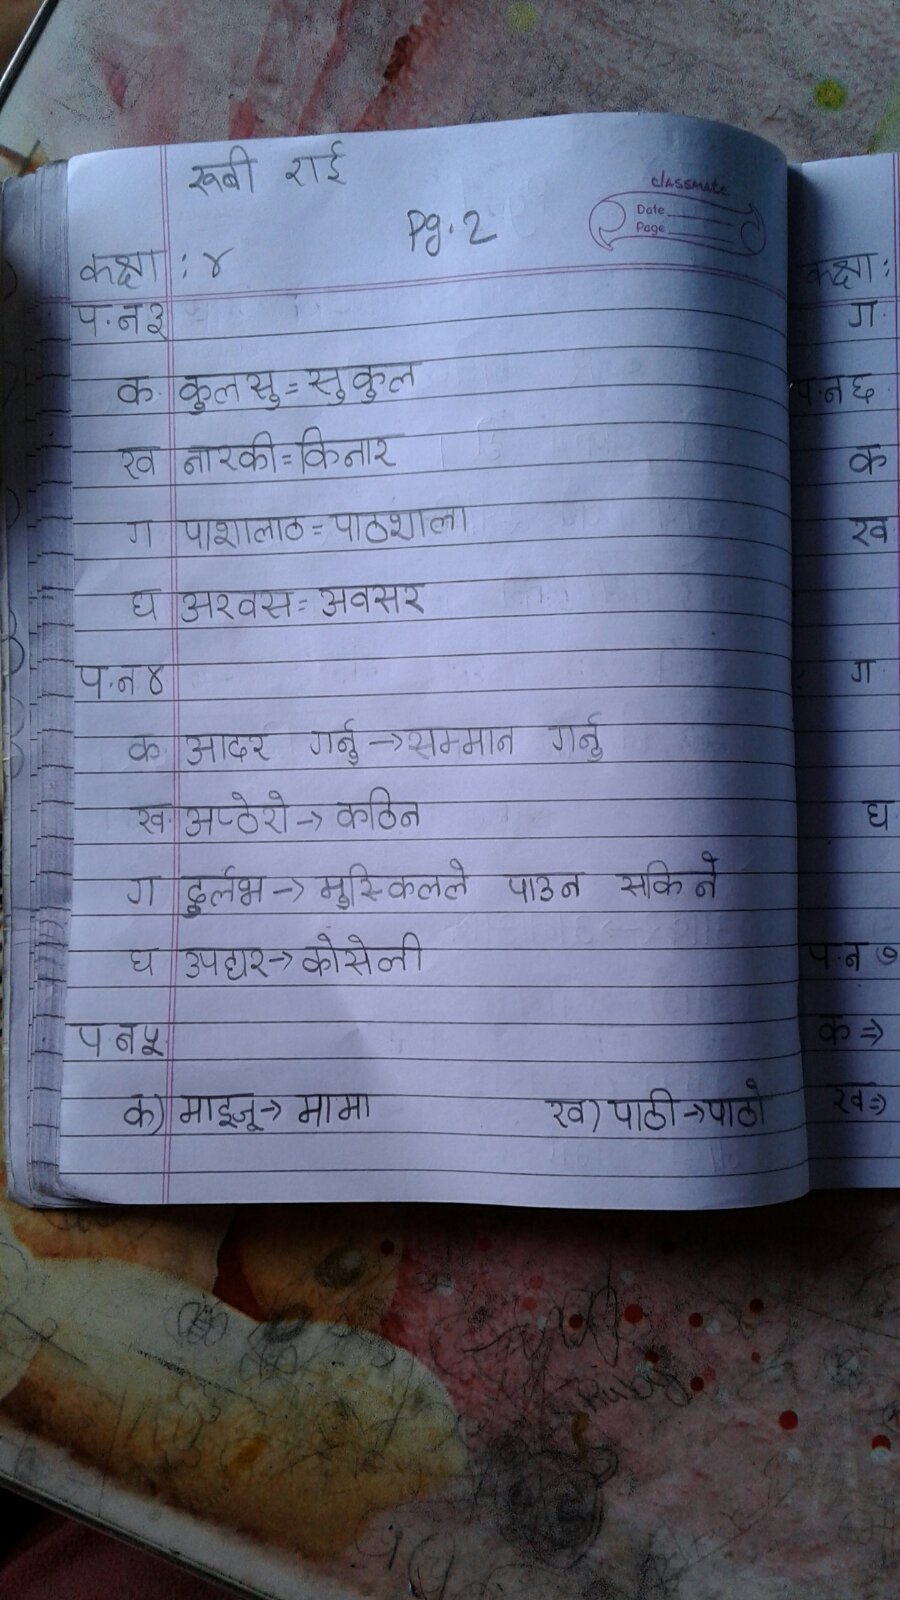 रूबी राई
classmate
Date
Page
Pg.2
कक्षा : ४
प.न ३
क. कुलसु = सुकुल
ख नारकी = किनार
ग पाशालाठ = पाठशाला
घ अरवस = अवसर
प.न ४
क. आदर गर्नु → सम्मान गर्नु
ख. अप्ठेरो → कठिन
ग दुर्लभ → मुस्किलले पाउन सकिने
घ उपहार → कोसेली
प न ५
क) माइजू → मामा ख) पाठी → पाठो
कक्षा :
ग.
प.न ६
क
ख
ग.
घ
प.न ७
क ⇒
ख ⇒
Ruby